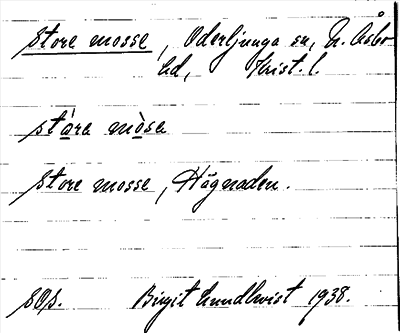 Store mosse, Oderljunga sn, N. Åsbo
hd, Krist. l.
stàra mòsa
Store mosse, Hägnaden.
SOp. Birgit Lundkvist 1938.